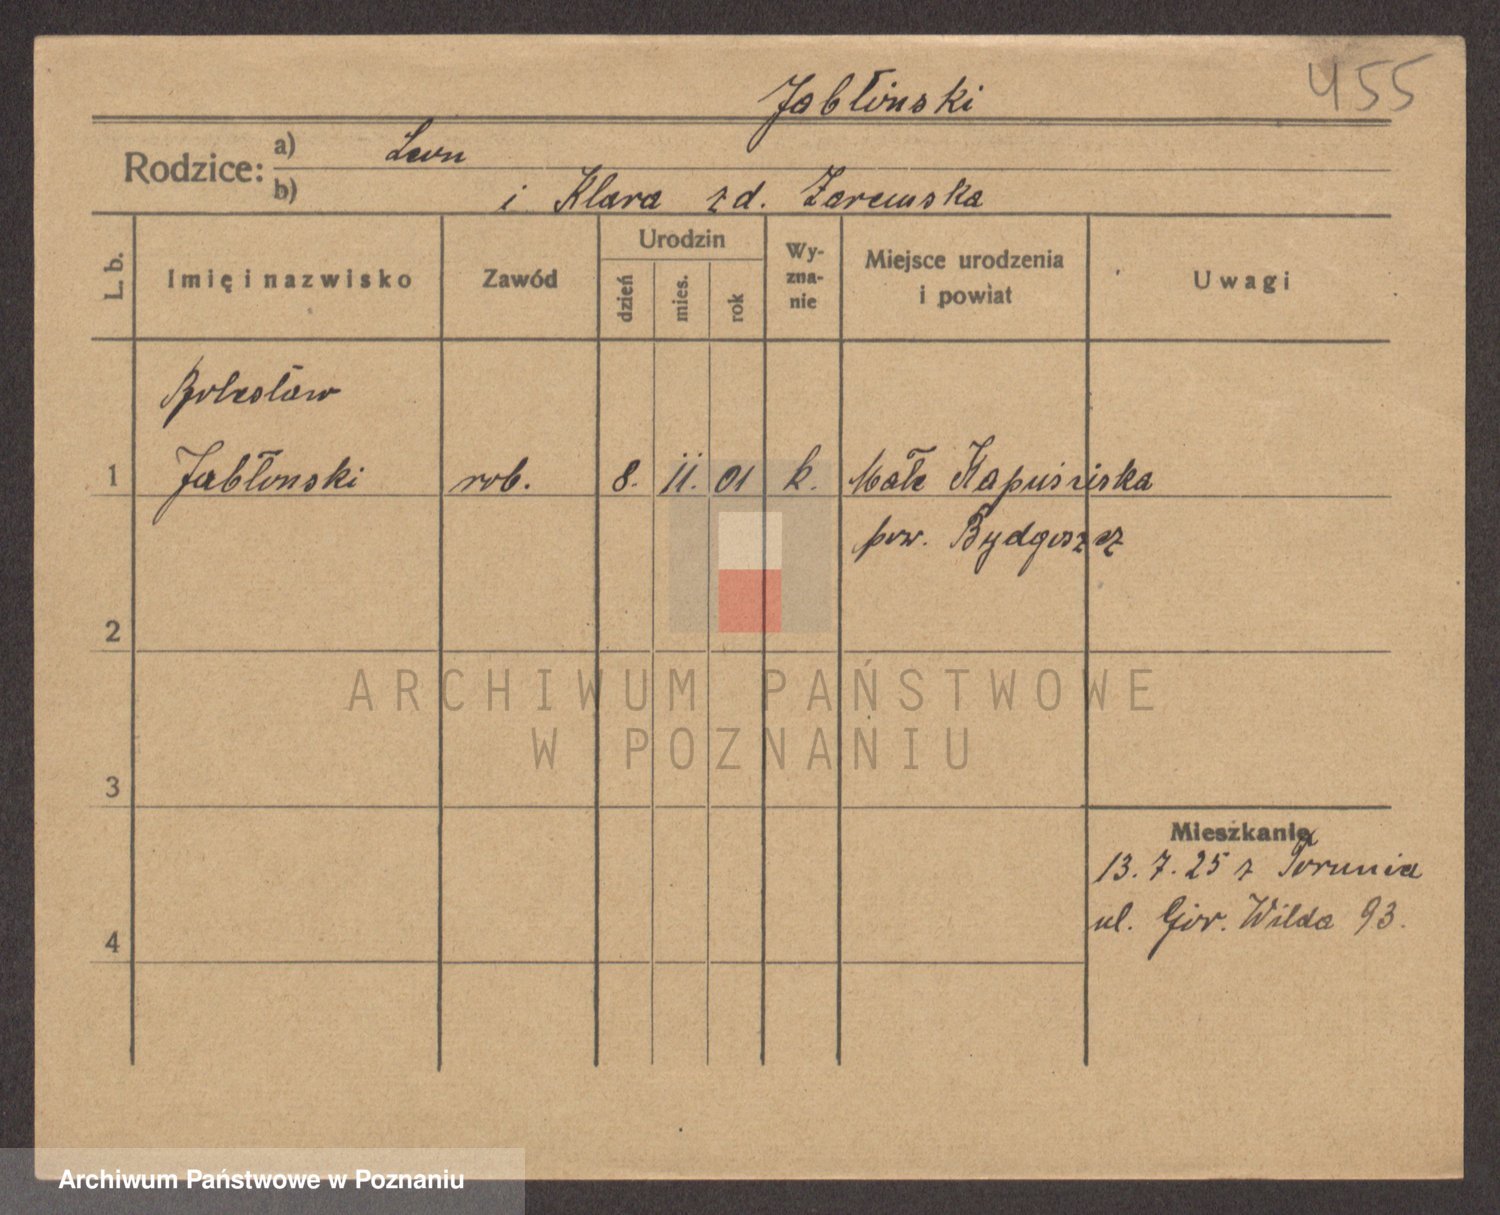 455
Jabłonski
Rodzice: a) Leon
b) i Klara zd. Zaremska
L. b.
Imię i nazwisko
Zawód
Urodzin
dzień
mies.
rok
Wy-
zna-
nie
Miejsce urodzenia
i powiat
Uwagi
Bolesław
1 Jabłonski rob. 8. II. 01 k. Małe Kapuśniska
pow. Bydgoszcz
2
ARCHIWUM PAŃSTWOWE
W POZNANIU
3
Mieszkanie
13. 7. 25 z Torunia
ul. Gór. Wilda 93.
4
Archiwum Państwowe w Poznaniu